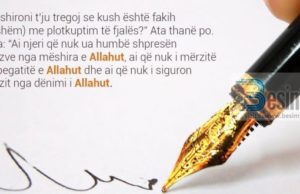 shironi t'ju tregoj se kush është fakih
shëm) me plotkuptim të fjalës?” Ata thanë po.
a: “Ai njeri që nuk ua humbë shpresën
zve nga mëshira e Allahut, ai që nuk i mërzitë
begatitë e Allahut dhe ai që nuk i siguron
zit nga dënimi i Allahut.
Besim